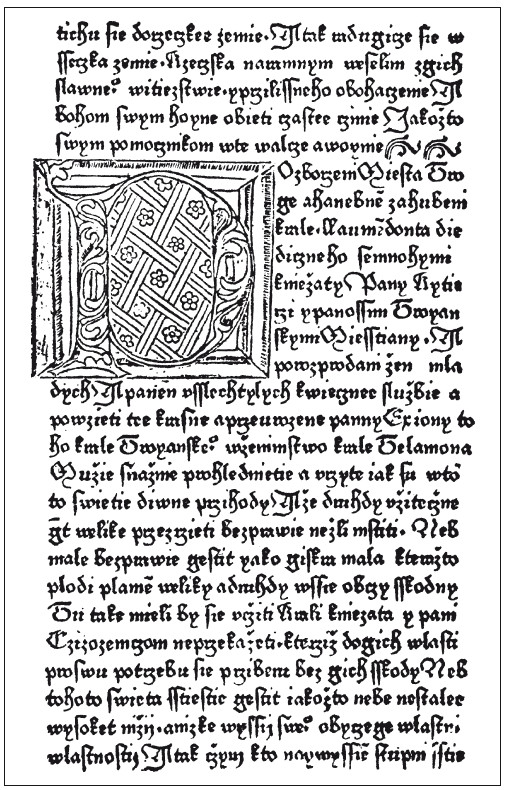 tichu sie dorzeczkee zemie. A tak radugicze sie w
ssieczka zemie. Rzeczska naramnym weselim zgich
slawne⁹ witiezstwie. yprzilissneho obohaczenie A
bohom swym hoyne obieti czastee czinie Jakozto
swym pomocznikom wte walcze awoynie
Ozborzem Miesta Tro
ge ahanebne zahubeni
krale. Laumedonta die
diczneho semnohymi
kniezaty Pany Rytie
rzi ypanossim Troyan
skym Miesstiany. A
porozprodani zen mla
dych A panen vsslechtylych kwiecznee sluzbie a
powzieti tee krasne aprzeurozene panny Exiony to
ho krale Troyanske⁹ wzeninstwo krale Telamona
Muzie snazne prohlednietie a vzrzyte iak su wtō
to swietie diwne przihody A ze druhdy vziteczne
gt welike przezrzieti bezprawie nezli mstiti. Neb
male bezprawie gestit yako giskra mala kterazto
plodi plamē weliky adruhdy wssie obczy sskodny
Tu take mieli by sie vcziti Krali kniezata y pani
Czizozemczom neprzekazeti. kterziz dogich wlasti
proswu potrzebu sie prziberu bez gich sskody Neb
tohoto swieta sstiestie gestit iakozto nebe nestalee
wysoket nizij. anizke wyssij swe⁹ obyczege wlastni
wlastnostij A tak czym kto naywyssie stupni sstie